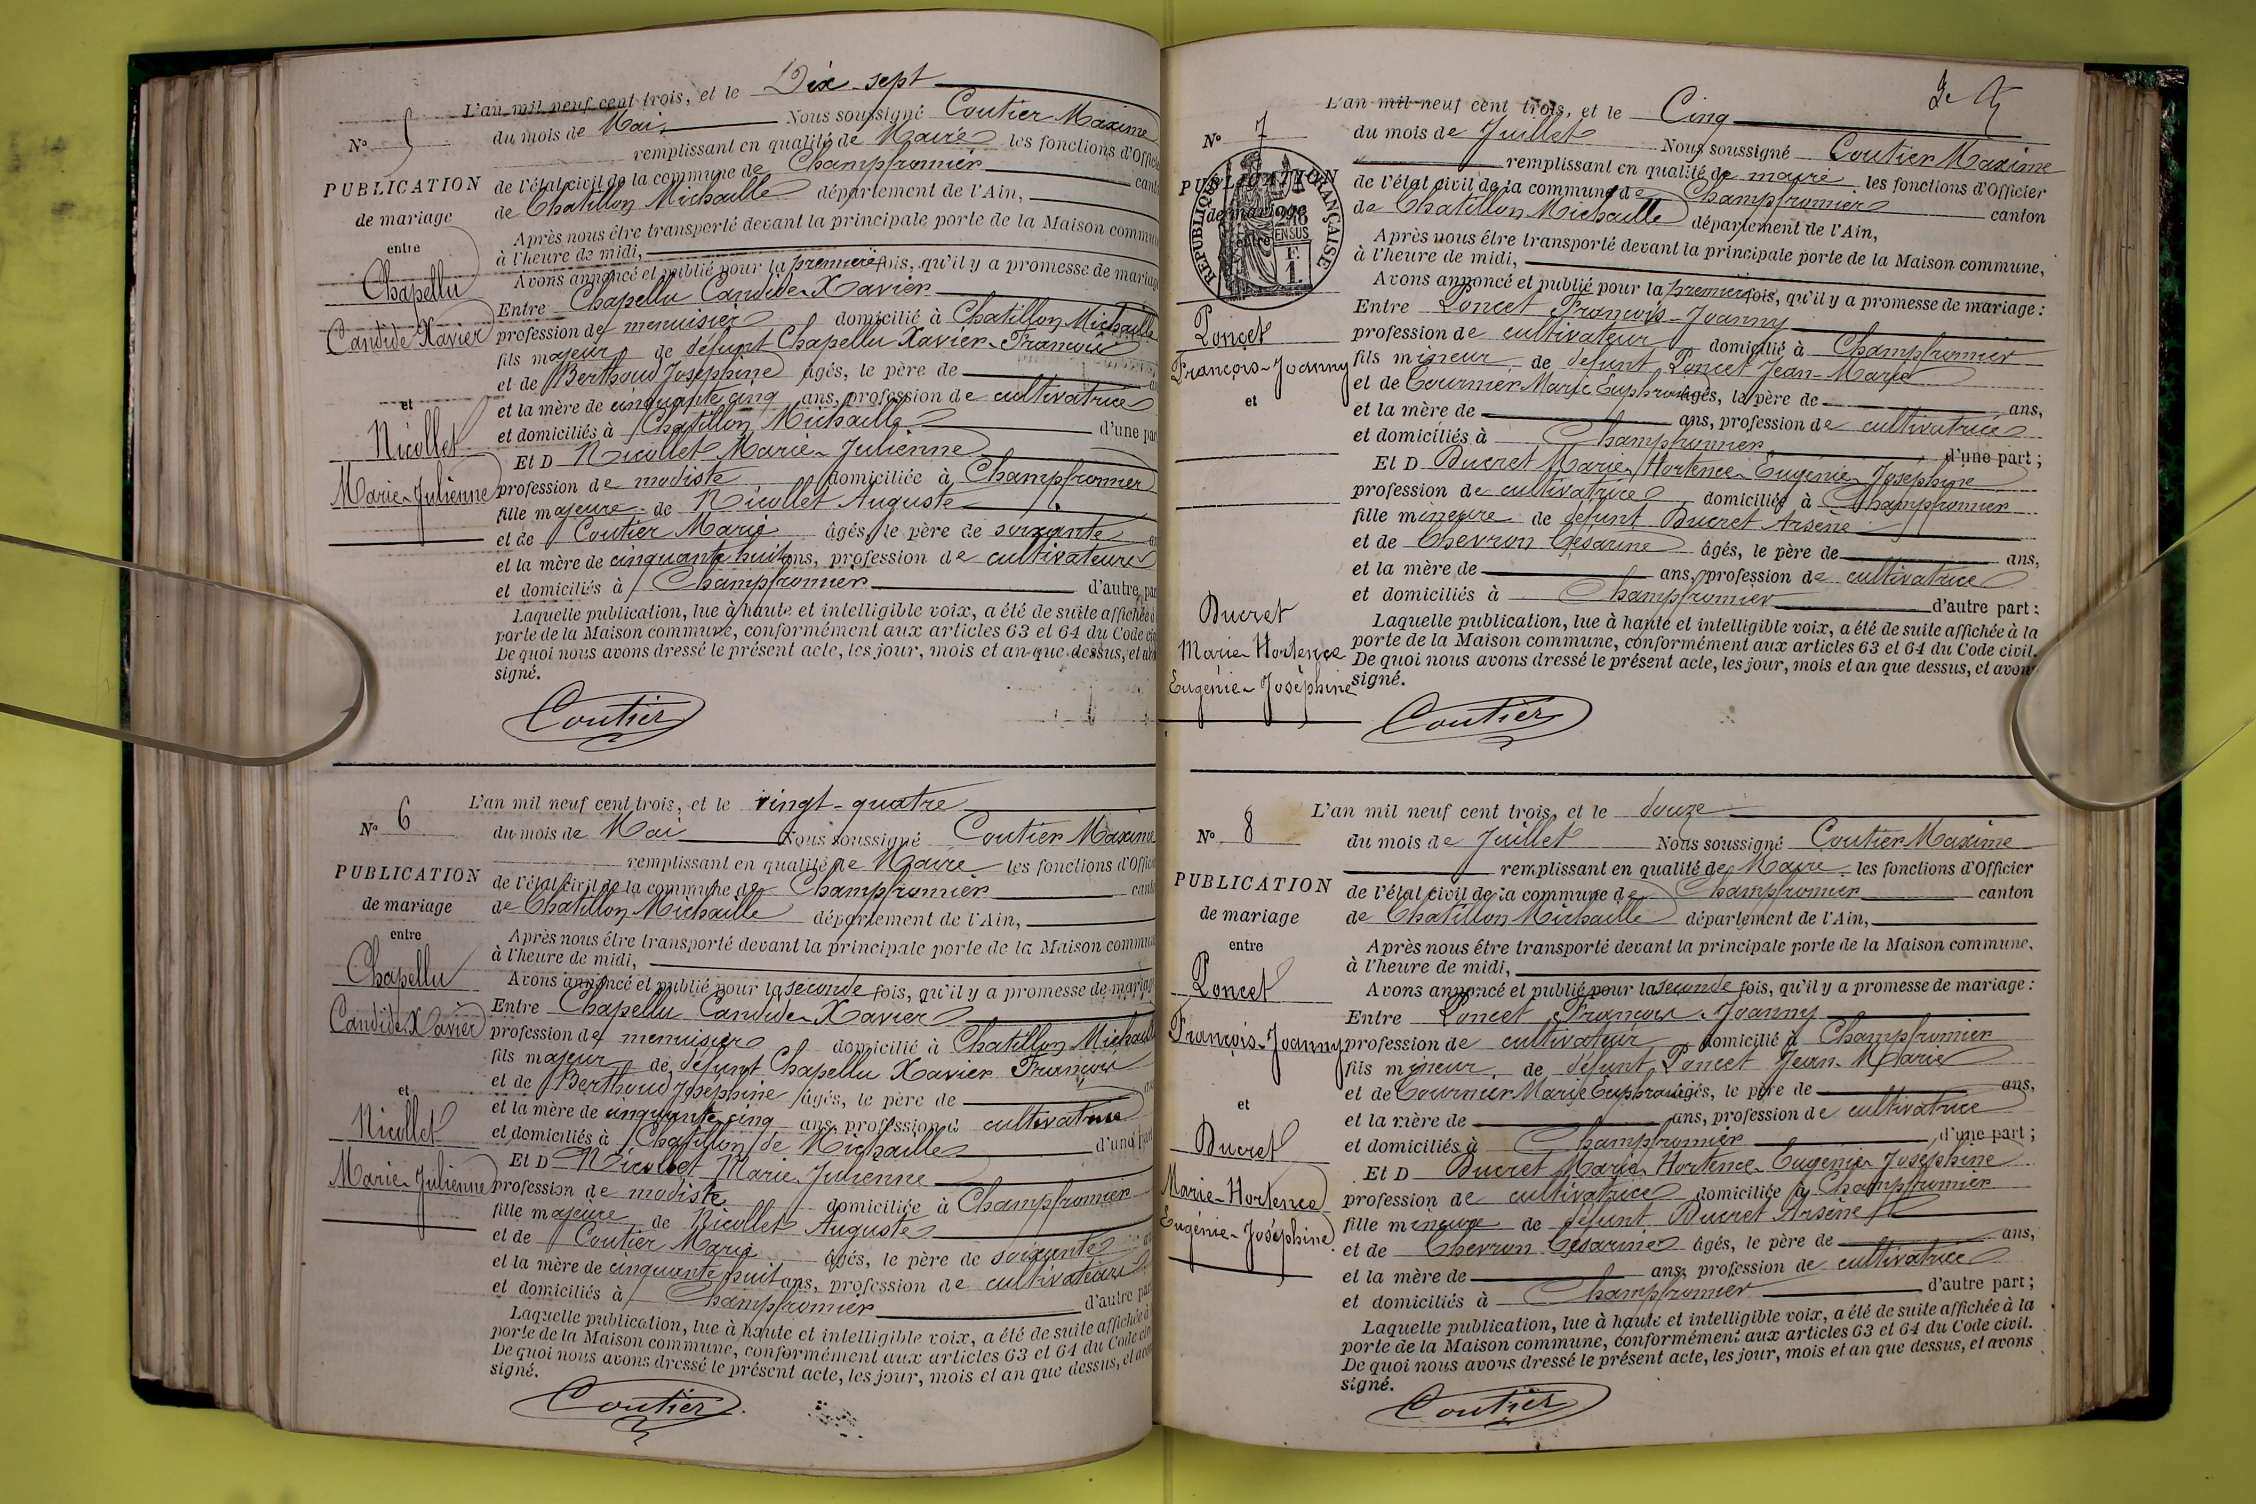 N° 5
PUBLICATION
de mariage
entre
Chapellu
Candide Xavier
et
Nicollet
Marie-Julienne
L'an mil neuf cent trois, et le Dix-sept
du mois de Mai Nous soussigné Coutier Maxime
remplissant en qualité de Maire les fonctions d'Offici
de l'état civil de la commune de Champfromier cant
de Chatillon Michaille département de l'Ain,
Après nous être transporté devant la principale porte de la Maison commun
à l'heure de midi,
Avons annoncé et publié pour la première fois, qu'il y a promesse de mariag
Entre Chapellu Candide-Xavier
profession de menuisier domicilié à Chatillon Michaille
fils majeur de défunt Chapellu Xavier-François
et de Berthoud Joséphine âgés, le père de
et la mère de cinquante cinq ans, profession de cultivatrice
et domiciliés à Chatillon Michaille d'une par
Et D Nicollet Marie-Julienne
profession de modiste domiciliée à Champfromier
fille majeure de Nicollet Auguste
et de Coutier Marie âgés, le père de soixante
et la mère de cinquante huit ans, profession de cultivateurs
et domiciliés à Champfromier d'autre par
Laquelle publication, lue à haute et intelligible voix, a été de suite affichée à
porte de la Maison commune, conformément aux articles 63 et 64 du Code ci
De quoi nous avons dressé le présent acte, les jour, mois et an que dessus, et avo
signé.
Coutier
N° 6
PUBLICATION
de mariage
entre
Chapellu
Candide Xavier
et
Nicollet
Marie-Julienne
L'an mil neuf cent trois, et le vingt-quatre
du mois de Mai Nous soussigné Coutier Maxime
remplissant en qualité de Maire les fonctions d'Offici
de l'état civil de la commune de Champfromier cant
de Chatillon Michaille département de l'Ain,
Après nous être transporté devant la principale porte de la Maison commun
à l'heure de midi,
Avons annoncé et publié pour la seconde fois, qu'il y a promesse de mariag
Entre Chapellu Candide-Xavier
profession de menuisier domicilié à Chatillon Michaille
fils majeur de défunt Chapellu Xavier François
et de Berthoud Joséphine âgés, le père de
et la mère de cinquante cinq ans, profession d cultivatrice
et domiciliés à Chatillon de Michaille d'une part
Et D Nicollet Marie Julienne
profession de modiste domiciliée à Champfromier
fille majeure de Nicollet Auguste
et de Coutier Marie âgés, le père de soixante
et la mère de cinquante huit ans, profession de cultivateurs
et domiciliés à Champfromier d'autre par
Laquelle publication, lue à haute et intelligible voix, a été de suite affichée à
porte de la Maison commune, conformément aux articles 63 et 64 du Code civ
De quoi nous avons dressé le présent acte, les jour, mois et an que dessus, et avon
signé.
Coutier
N° 7
PUBLICATION
de mariage
entre
RÉPUBLIQUE FRANÇAISE
2/10 EN SUS
1 F.
Poncet
François-Joanny
et
Ducret
Marie-Hortence
Eugénie-Joséphine
L'an mil neuf cent trois, et le Cinq
du mois de Juillet Nous soussigné Coutier Maxime
remplissant en qualité de maire les fonctions d'Officier
de l'état civil de la commune de Champfromier canton
de Chatillon Michaille département de l'Ain,
Après nous être transporté devant la principale porte de la Maison commune,
à l'heure de midi,
Avons annoncé et publié pour la première fois, qu'il y a promesse de mariage :
Entre Poncet François-Joanny
profession de cultivateur domicilié à Champfromier
fils mineur de défunt Poncet Jean-Marie
et de Tournier Marie Euphrosie âgés, le père de ans,
et la mère de ans, profession de cultivatrice
et domiciliés à Champfromier d'une part ;
Et D Ducret Marie-Hortence-Eugénie-Joséphine
profession de cultivatrice domiciliée à Champfromier
fille mineure de défunt Ducret Arsène
et de Chevron Césarine âgés, le père de ans,
et la mère de ans, profession de cultivatrice
et domiciliés à Champfromier d'autre part :
Laquelle publication, lue à haute et intelligible voix, a été de suite affichée à la
porte de la Maison commune, conformément aux articles 63 et 64 du Code civil.
De quoi nous avons dressé le présent acte, les jour, mois et an que dessus, et avons
signé.
Coutier
N° 8
PUBLICATION
de mariage
entre
Poncet
François-Joanny
et
Ducret
Marie-Hortence
Eugénie-Joséphine
L'an mil neuf cent trois, et le douze
du mois de Juillet Nous soussigné Coutier Maxime
remplissant en qualité de Maire les fonctions d'Officier
de l'état civil de la commune de Champfromier canton
de Chatillon Michaille département de l'Ain,
Après nous être transporté devant la principale porte de la Maison commune,
à l'heure de midi,
Avons annoncé et publié pour la seconde fois, qu'il y a promesse de mariage :
Entre Poncet François-Joanny
profession de cultivateur domicilié à Champfromier
fils mineur de défunt Poncet Jean-Marie
et de Tournier Marie Euphrosie âgés, le père de ans,
et la mère de ans, profession de cultivatrice
et domiciliés à Champfromier d'une part ;
Et D Ducret Marie-Hortence-Eugénie-Joséphine
profession de cultivatrice domiciliée à Champfromier
fille mineure de défunt Ducret Arsène
et de Chevron Césarine âgés, le père de ans,
et la mère de ans, profession de cultivatrice
et domiciliés à Champfromier d'autre part ;
Laquelle publication, lue à haute et intelligible voix, a été de suite affichée à la
porte de la Maison commune, conformément aux articles 63 et 64 du Code civil.
De quoi nous avons dressé le présent acte, les jour, mois et an que dessus, et avons
signé.
Coutier